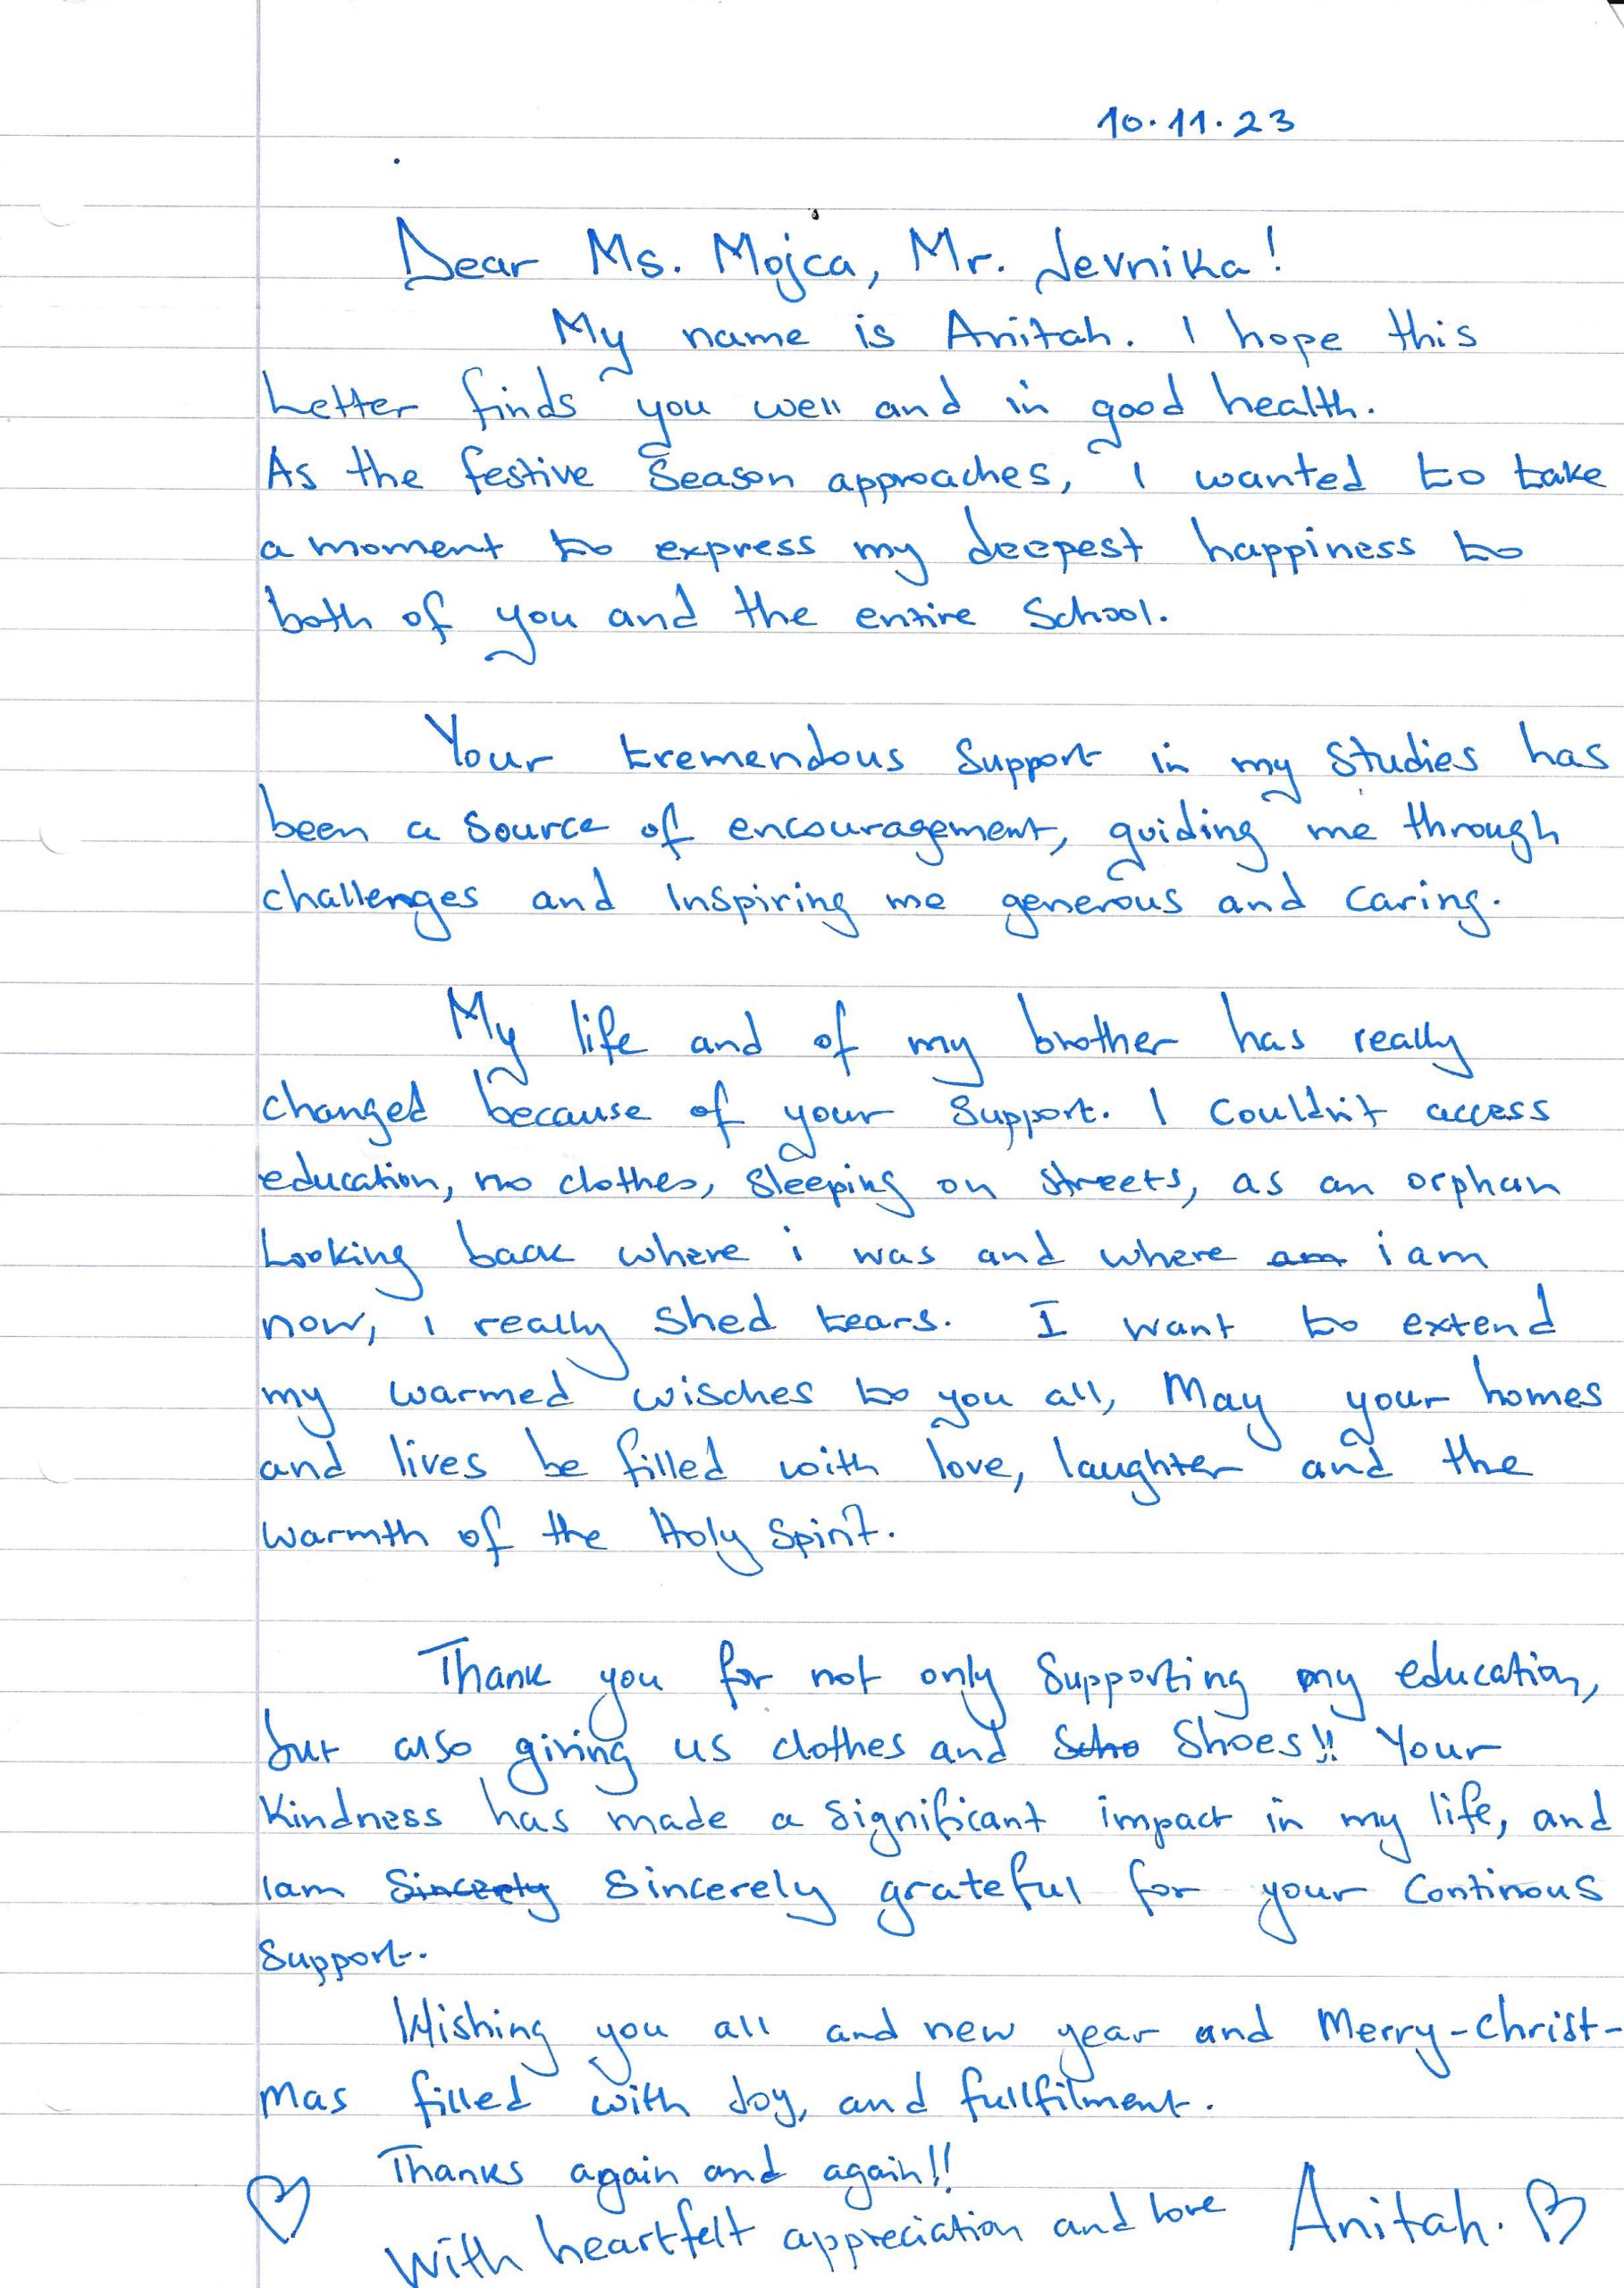 10.11.23
Dear Ms. Mojca, Mr. Jevnika!
My name is Anitah. I hope this
Letter finds you well and in good health.
As the festive Season approaches, I wanted to take
a moment to express my deepest happiness to
both of you and the entire School.
Your tremendous Support in my Studies has
been a source of encouragement, guiding me through
challenges and Inspiring me generous and caring.
My life and of my brother has really
changed because of your Support. I couldn't access
education, no clothes, Sleeping on streets, as an orphan
Looking back where i was and where am i am
now, i really shed tears. I want to extend
my warmed wisches to you all, May your homes
and lives be filled with love, laughter and the
warmth of the Holy Spirit.
Thank you for not only Supporting my education,
but also giving us clothes and Scho Shoes!! Your
Kindness has made a Significant impact in my life, and
Iam Sincerty Sincerely grateful for your Continous
Support.
Wishing you all and new year and Merry-Christ-
mas filled with Joy, and fullfilment.
Thanks again and again!!
With heartfelt appreciation and love Anitah.